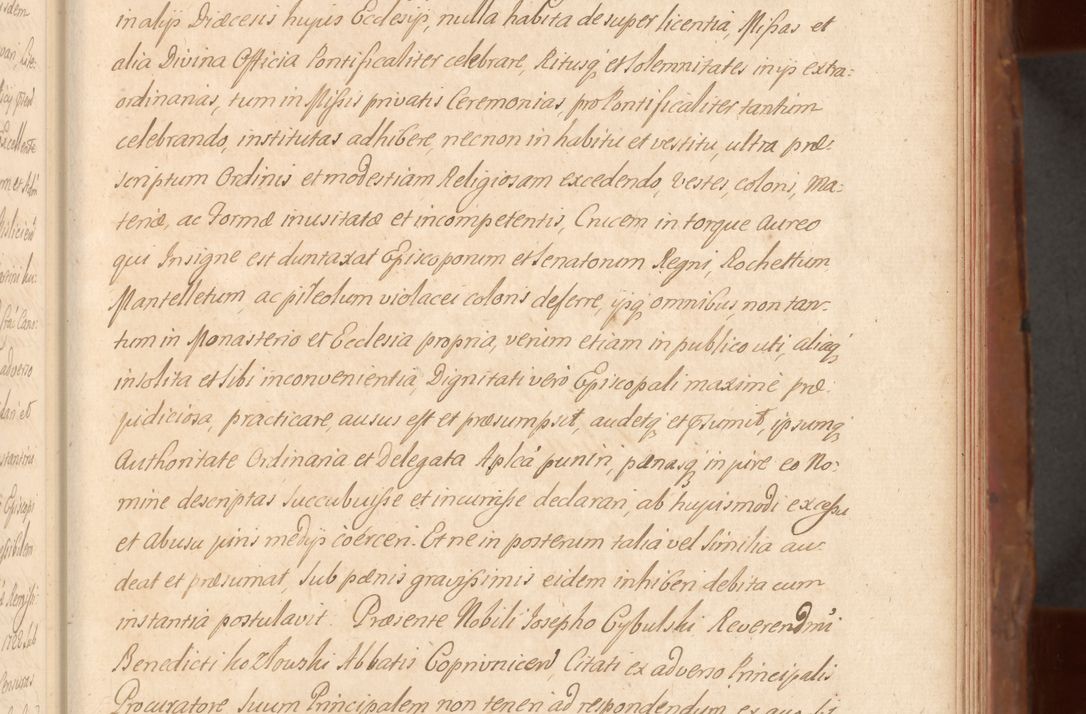 in alijs Diæcesis hujus Ecclesijs, nulla habita desuper licentia, Missas et
alia Divina Officia Pontificaliter celebrare, Ritusq́ et Solemnitates in ijs extra:
ordinarias, tum in Missis privatis Ceremonias, pro Pontificaliter tantum
celebrando, institutas adhibere, necnon in habitu et vestitu, ultra præ:
scriptum Ordinis et modestiam Religiosam excedendo, vestes, coloris, Ma:
teriæ, ac Formæ inusitatæ et incompetentis, Crucem in torque Aureo
qui Insigne est duntaxat Episcoporum et Senatorum Regni, Rochettum
Mantelletum, ac pileolum violacei coloris deferre, ijsq́ omnibus, non tan:
tum in Monasterio et Ecclesia propria, verum etiam in publico uti, aliaq́
insolita et sibi inconvenientia, Dignitati verò Episcopali maximè præ:
judiciosa, practicare, ausus est et præsumpsit, audetq́ et p̄sumit, ipsumq́
Authoritate Ordinaria et Delegata Aplcá puniri, pænasq́ in jure eo No:
mine descriptas succubuisse et incurrisse declarari, ab hujusmodi excessu
et abusu juris medijs coërceri. Et ne in posterum talia vel similia au:
deat et præsumat, sub pænis gravissimis eidem inhiberi debita cum
instantia postulavit. Præsente Nobili Josepho Cybulski Reverendmi
Benedicti Kozłowski Abbatis Coprivnicen̄, Citati ex adverso Principalis
Procuratore Suum Principalem non teneri ad respondendum ex quo